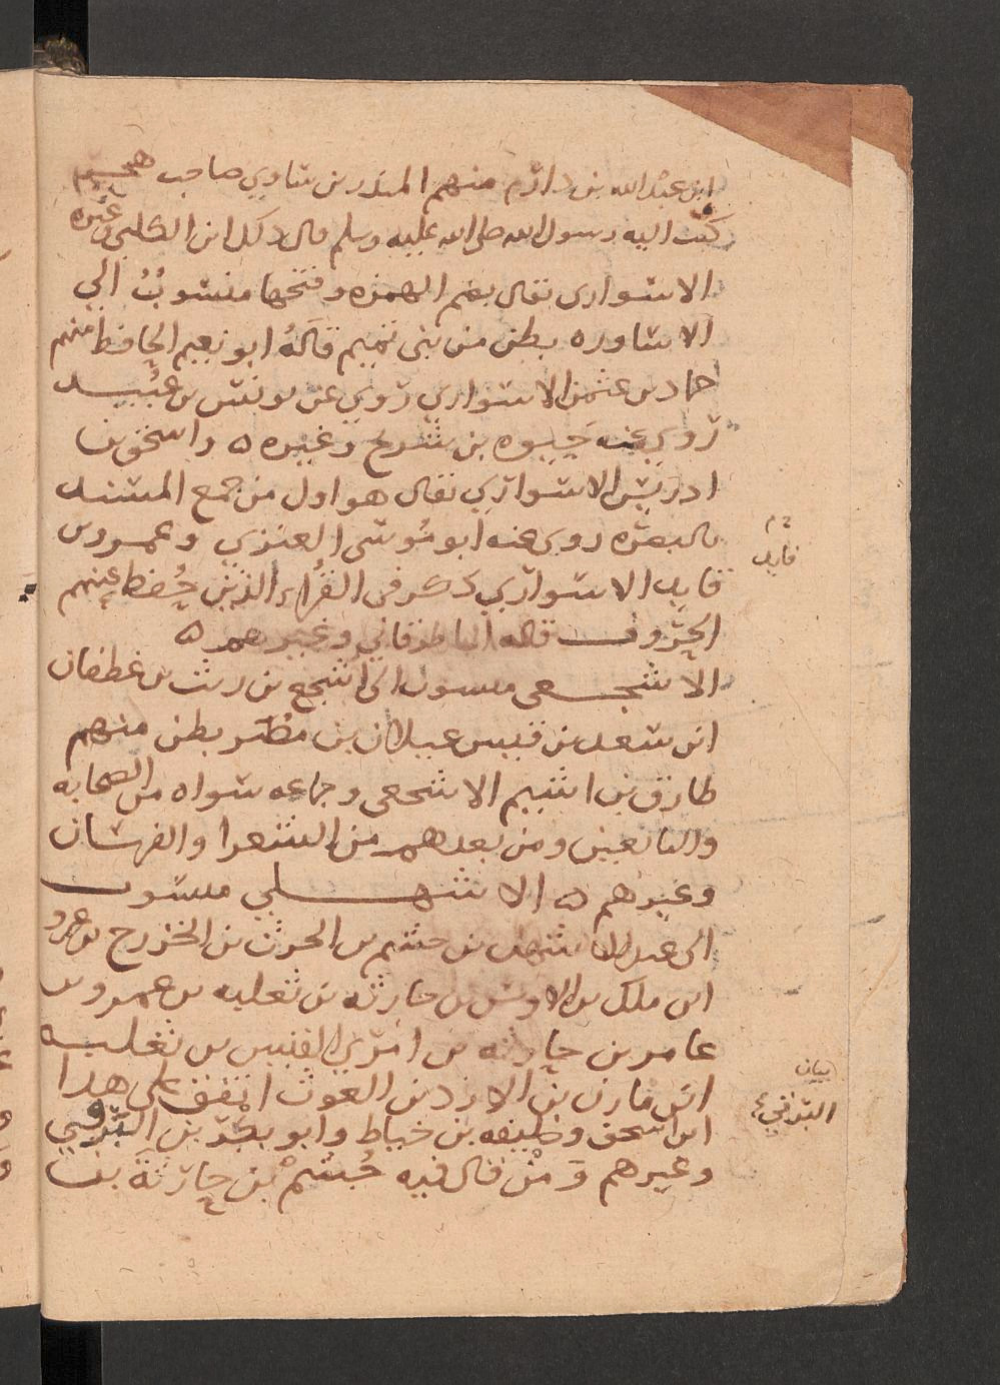 ابن عبد الله بن دارم منهم المنذر بن ساوي صاحب هجر
كتب اليه رسول الله صلى الله عليه وسلم قال ذلك ابن الكلبي وغيره
الاسواري يقال بضم الهمزه وفتحها منسوب الي
الاساوره بطن من بني تميم قاله ابو نعيم الحافظ منهم
حماد بن عثمن الاسواري روي عن يونس بن عبيد
روي عنه حيوه بن شريح وغيره ه واسحق بن
ادريس الاسواري يقال هو اول من جمع المسند
بالبصره روي عنه ابو موسى العنزي وعمرو بن
فايد الاسواري ذكر في القراء الذين حفظ عنهم
الحروف قاله الباطرقاني وغيرهم ه
الاشجعي منسوب الى اشجع بن ريث بن غطفان
ابن سعد بن قيس عيلان بن مضر بطن منهم
طارق بن اشيم الاشجعي وجماعه سواه من الصحابه
والتابعين ومن بعدهم من الشعرا والفرسان
وغيرهم ه الاشهلي منسوب
الى عبد الاشهل بن جشم بن الحرث بن الخزرج بن عمرو
ابن ملك بن الاوس بن حارثه بن ثعلبه بن عمرو بن
عامر بن حارثه بن امري القيس بن ثعلبه
ابن مازن بن الازد بن الغوث اتفق على هذا
ابن اسحق وخليفه بن خياط وابو بكر بن البرقي
وغيرهم ومن قال فيه جشم بن حارثة بن
فايد
بيان
البرقي